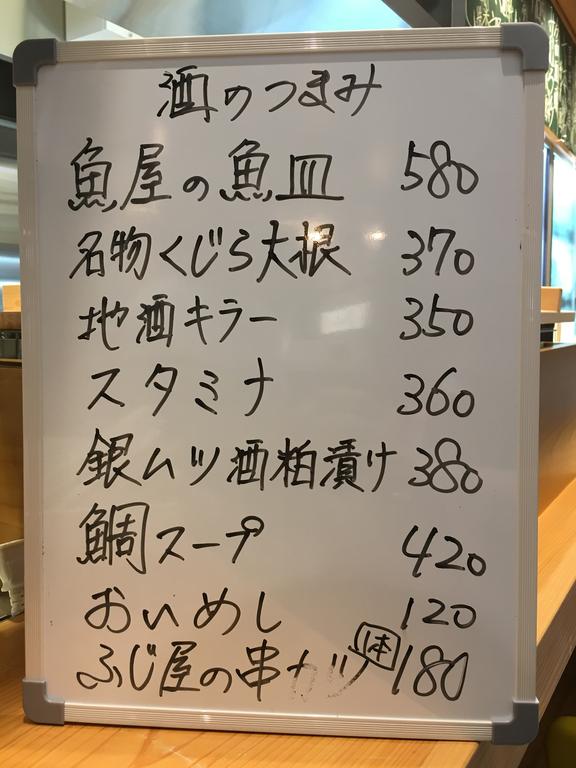 酒のつまみ
魚屋の魚皿 580
名物くじら大根 370
地酒キラー 350
スタミナ 360
銀ムツ酒粕漬け 380
鯛スープ 420
おいめし 120
ふじ屋の串カツ 1本 180